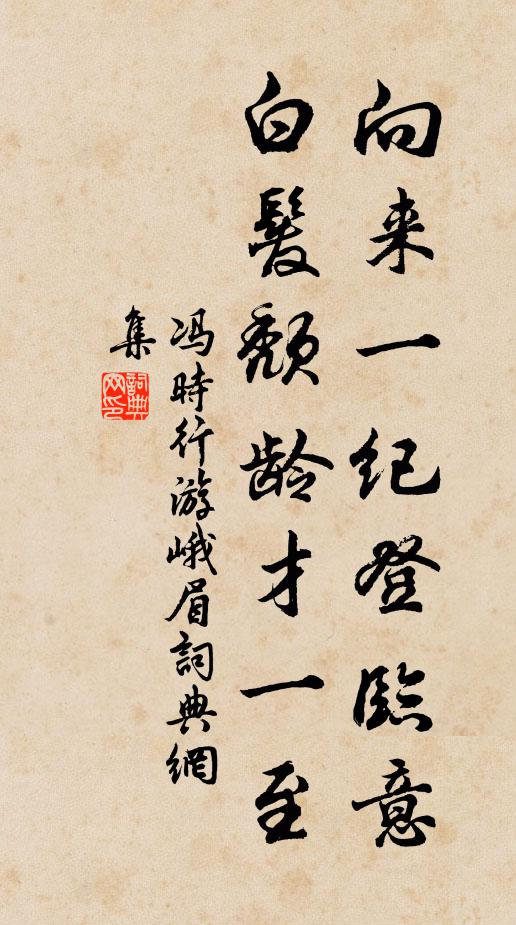 向来一纪登临意
白髮颓龄才一至
冯時行游峨眉詞典網
集
詞典网印